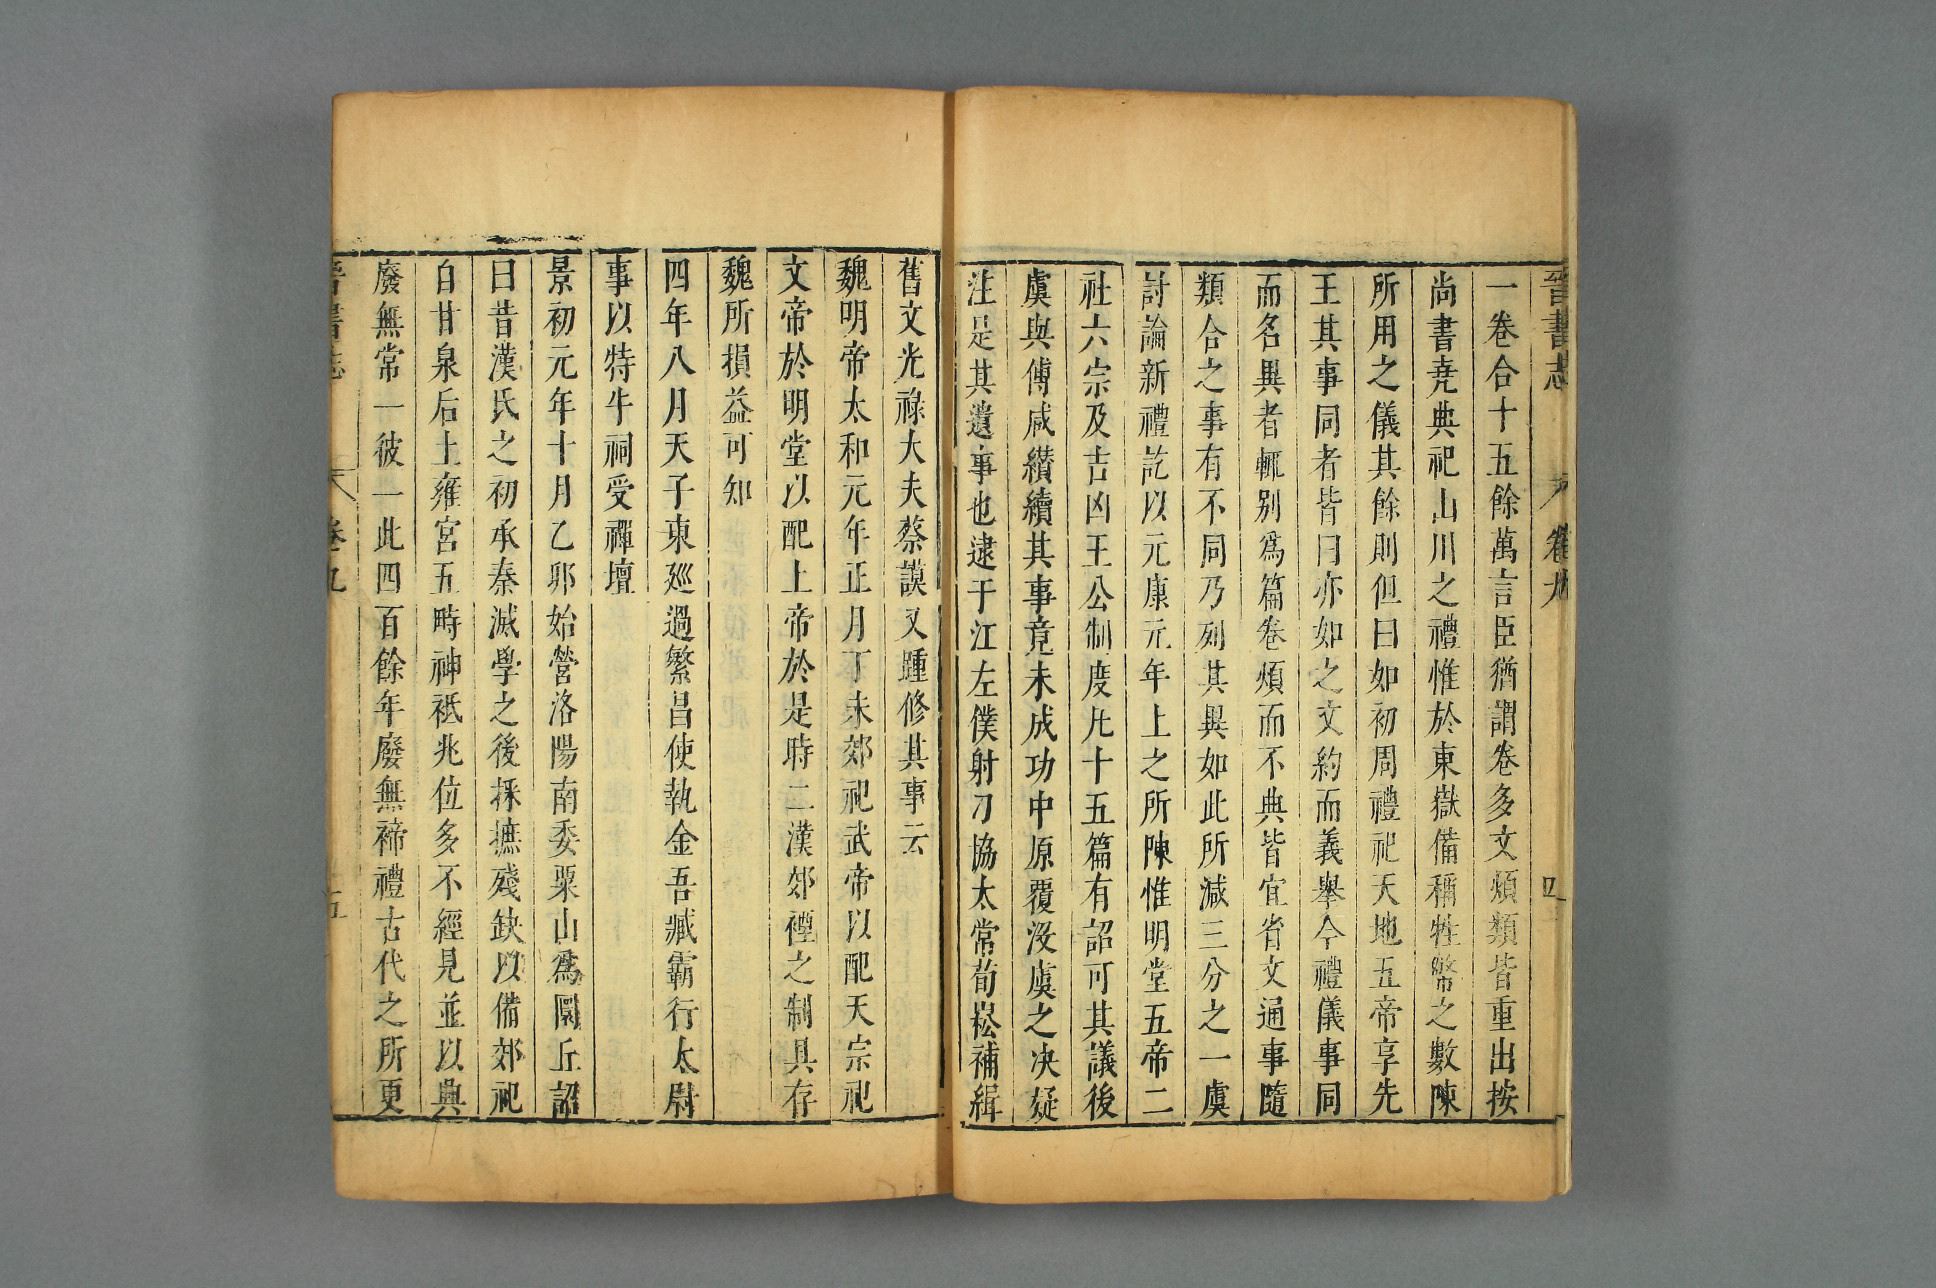 晉書志 卷九 四
一卷合十五餘萬言臣猶謂卷多文煩類皆重出按
尚書堯典祀山川之禮惟於東嶽備稱牲幣之數陳
所用之儀其餘則但曰如初周禮祀天地五帝享先
王其事同者皆曰亦如之文約而義舉今禮儀事同
而名異者輒别爲篇卷煩而不典皆宜省文通事隨
類合之事有不同乃列其異如此所減三分之一虞
討論新禮訖以元康元年上之所陳惟明堂五帝二
社六宗及吉凶王公制度凡十五篇有詔可其議後
虞與傅咸纘續其事竟未成功中原覆没虞之决疑
注是其遺事也逮于江左僕射刁協太常荀崧補緝
舊文光祿大夫蔡謨又踵修其事云
魏明帝太和元年正月丁未郊祀武帝以配天宗祀
文帝於明堂以配上帝於是時二漢郊禋之制具存
魏所損益可知
四年八月天子東廵過繁昌使執金吾臧霸行太尉
事以特牛祠受禪壇
景初元年十月乙卯始營洛陽南委粟山爲圜丘詔
曰昔漢氏之初承秦滅學之後採摭殘缺以備郊祀
自甘泉后土雍宮五畤神祇兆位多不經見並以興
廢無常一彼一此四百餘年廢無禘禮古代之所更
晉書志 卷九 五